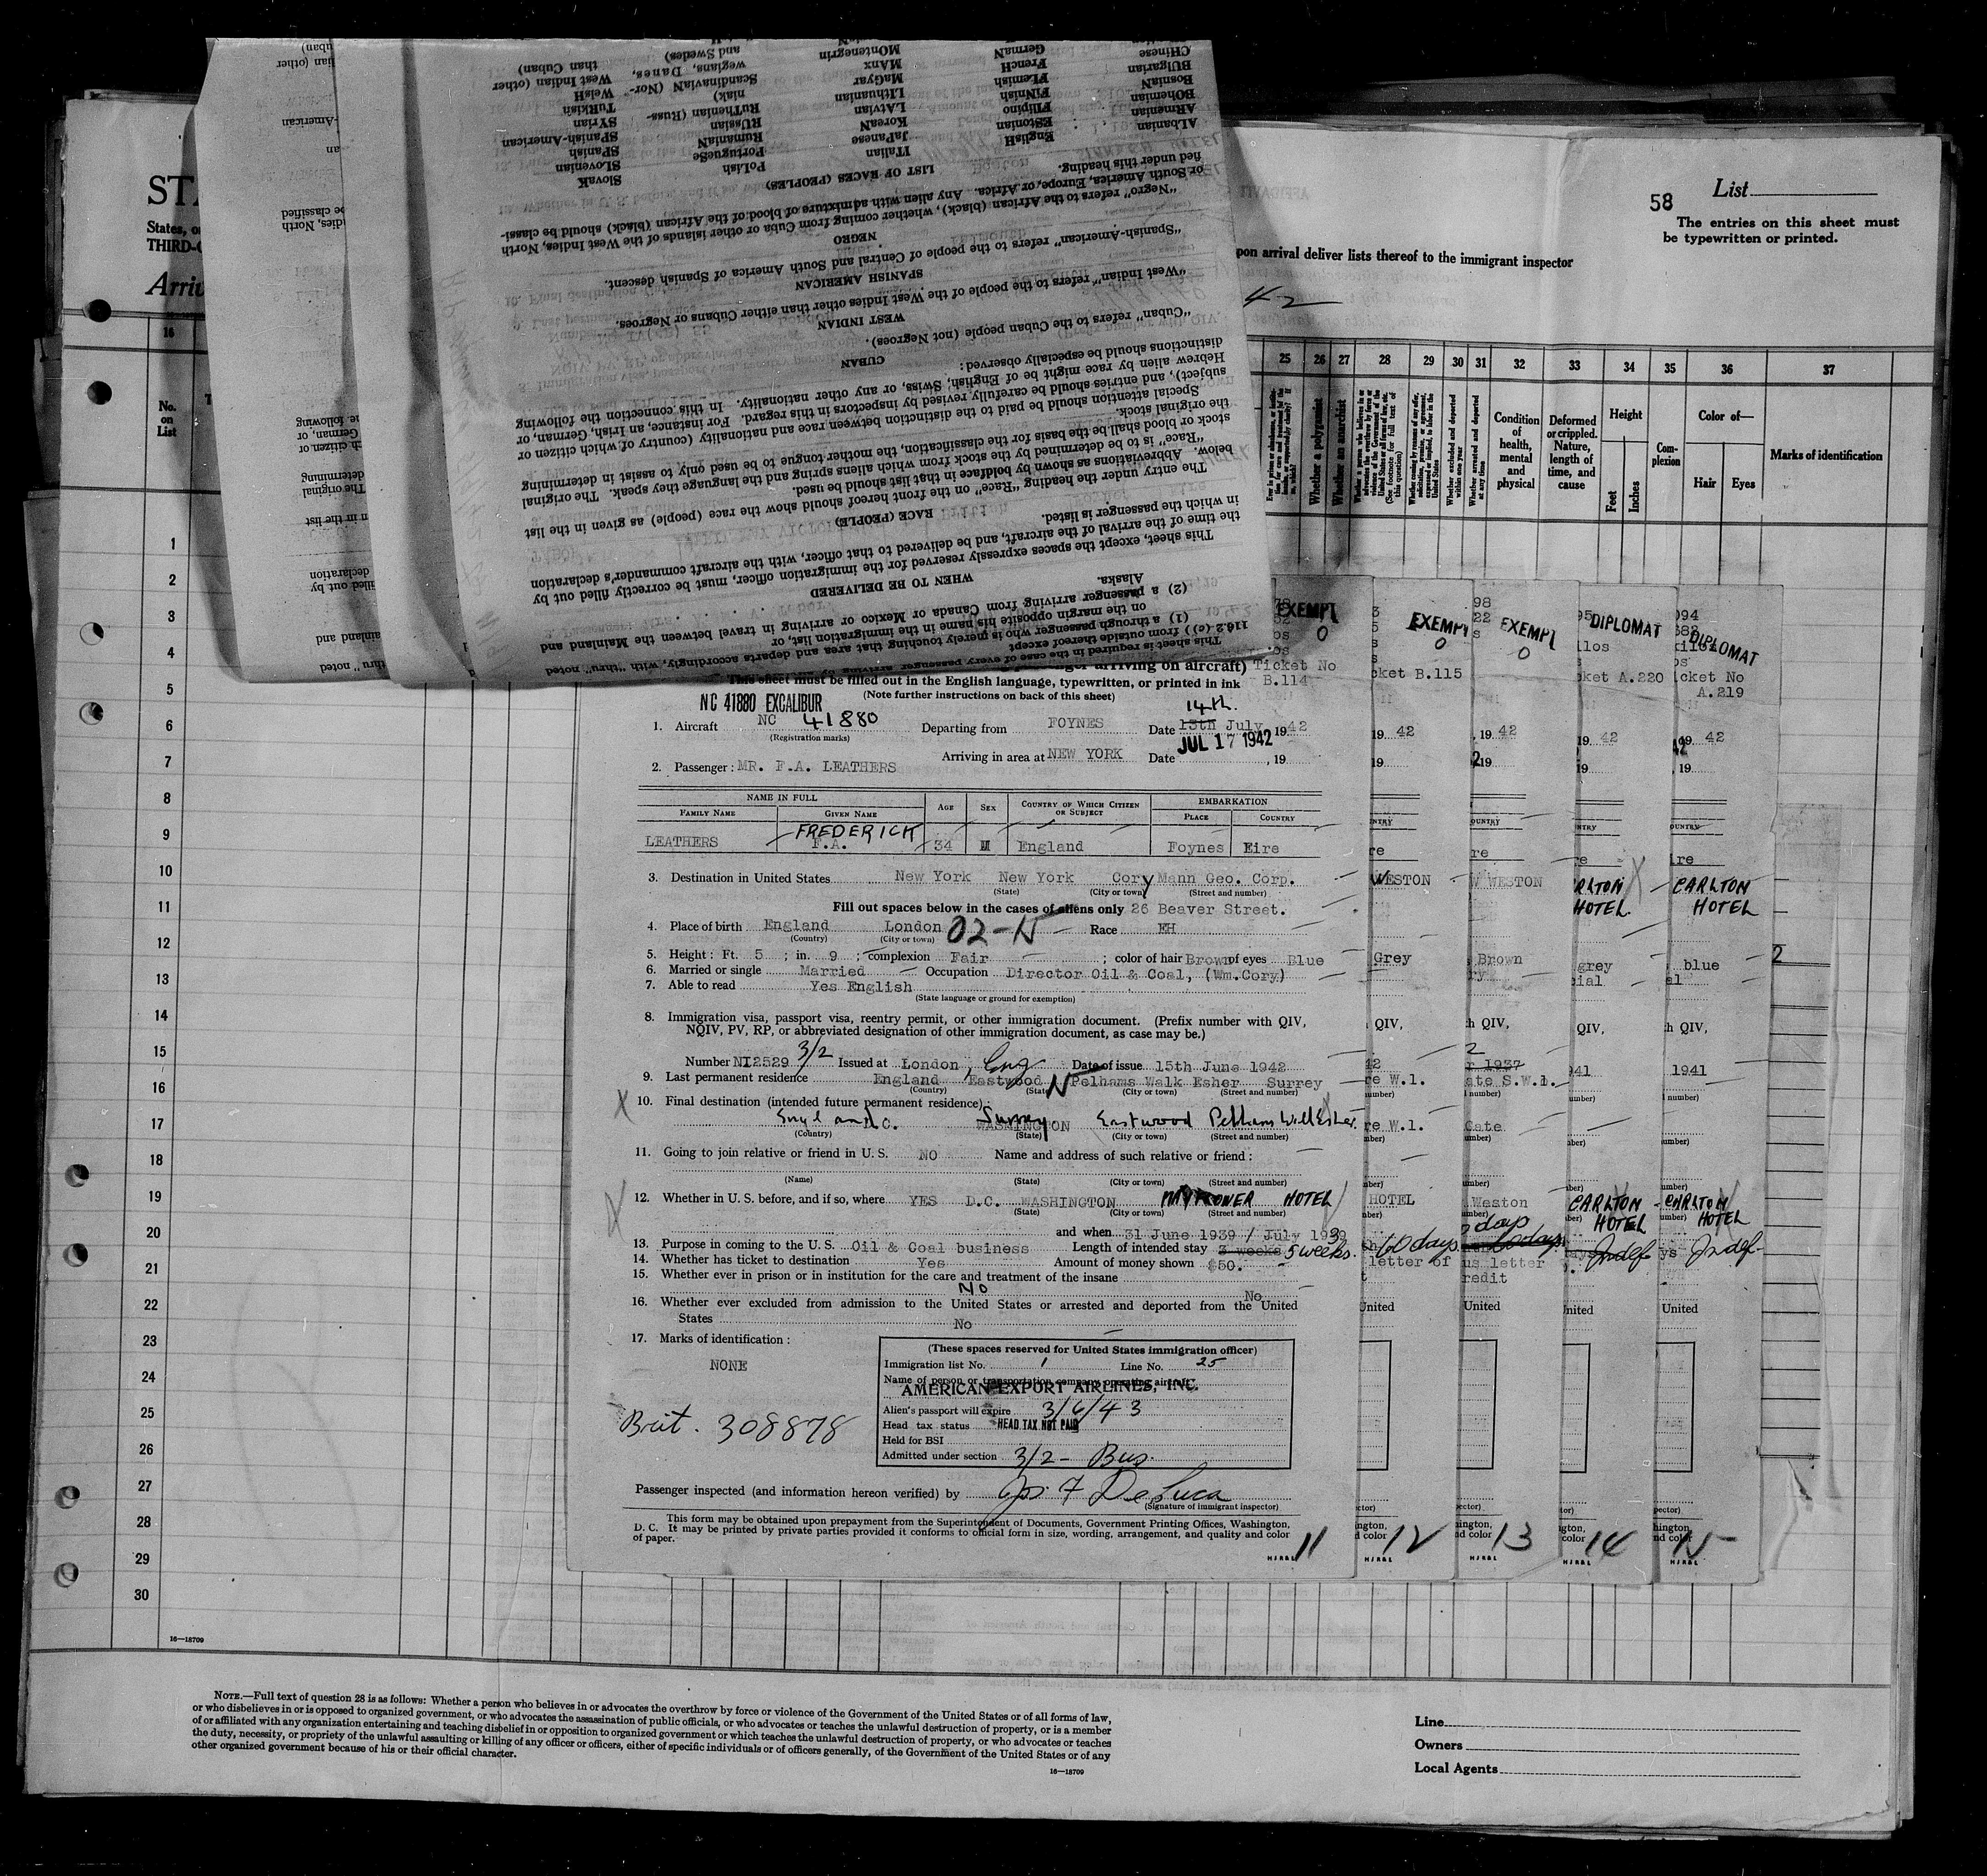 58
List
The entries on this sheet must
be typewritten or printed.
upon arrival deliver lists thereof to the immigrant inspector
STA
States, or
THIRD-C
Arriv
16
No.
on
List
25
26
27
28
29
30
31
32
33
34
35
36
37
Whether a polygamist
Whether an anarchist
Condition
of
health,
mental
and
physical
Deformed
or crippled.
Nature,
length of
time, and
cause
Height
Feet
Inches
Com-
plexion
Color of—
Hair
Eyes
Marks of identification
1
2
3
4
5
6
7
8
9
10
11
12
13
14
15
16
17
18
19
20
21
22
23
24
25
26
27
28
29
30
16—18709
This sheet is required in the case of every passenger arriving by
116.2 (c)) from outside thereof except
(1) a through passenger who is merely touching that area and departs accordingly, with "thru" noted
on the margin opposite his name in the immigration list, or
(2) a passenger arriving from Canada or Mexico or arriving in travel between the Mainland and
Alaska.
WHEN TO BE DELIVERED
This sheet, except the spaces expressly reserved for the immigration officer, must be correctly filled out by
the time of the arrival of the aircraft, and be delivered to that officer, with the aircraft commander's declaration
in which the passenger is listed.
RACE (PEOPLE)
The entry under the heading "Race" on the front hereof should show the race (people) as given in the list
below. Abbreviations as shown by boldface in that list should be used.
"Race" is to be determined by the stock from which aliens spring and the language they speak. The original
stock or blood shall be the basis for the classification, the mother tongue to be used only to assist in determining
the original stock.
Special attention should be paid to the distinction between race and nationality (country of which citizen or
subject), and entries should be carefully revised by inspectors in this regard. For instance, an Irish, German, or
Hebrew alien by race might be of English, Swiss, or any other nationality. In this connection the following
distinctions should be especially observed:
CUBAN
"Cuban" refers to the Cuban people (not Negroes).
WEST INDIAN
"West Indian" refers to the people of the West Indies other than either Cubans or Negroes.
SPANISH AMERICAN
"Spanish-American" refers to the people of Central and South America of Spanish descent.
NEGRO
"Negro" refers to the African (black), whether coming from Cuba or other islands of the West Indies, North
or South America, Europe, or Africa. Any alien with admixture of blood of the African (black) should be classi-
fied under this heading.
LIST OF RACES (PEOPLES)
ALbanian EnglisH ITalian PoLish SlovaK
ARmenian EStonian JaPanese PortugueSe SLovenian
BOhemian FIlipino KoreaN RumaniaN SPanish
BosniaN FiNNish LAtvian RUssian SPanish-American
BUlgarian FLemish LIthuanian RuThenian (Russ- SYrian
CHinese FrencH MaGyar niak) TuRkish
GermaN MAnx ScandinaviaN (Nor- WelsH
MOntenegrin wegians, Danes, West Indian (other
and Swedes) than Cuban)
arriving on aircraft) Ticket No
B.114
This sheet must be filled out in the English language, typewritten, or printed in ink
(Note further instructions on back of this sheet)
NC 41880 EXCALIBUR
14th.
1. Aircraft NC 41880 Departing from FOYNES Date 13th July, 1942
(Registration marks)
JUL 17 1942
Arriving in area at NEW YORK Date , 19
2. Passenger: MR. F.A. LEATHERS
NAME IN FULL AGE SEX COUNTRY OF WHICH CITIZEN OR SUBJECT EMBARKATION
FAMILY NAME GIVEN NAME PLACE COUNTRY
FREDERICK
LEATHERS F.A. 34 M England Foynes Eire
3. Destination in United States New York New York Cory Mann Geo. Corp.
(State) (City or town) (Street and number)
Fill out spaces below in the cases of aliens only 26 Beaver Street.
4. Place of birth England London 02-N Race EH
(Country) (City or town)
5. Height: Ft. 5 ; in. 9 ; complexion Fair ; color of hair Brown of eyes Blue
6. Married or single Married Occupation Director Oil & Coal, (Wm.Cory)
7. Able to read Yes English
(State language or ground for exemption)
8. Immigration visa, passport visa, reentry permit, or other immigration document. (Prefix number with QIV,
NQIV, PV, RP, or abbreviated designation of other immigration document, as case may be.)
Number NI2529 3/2 Issued at London, Eng Date of issue 15th June 1942
9. Last permanent residence England Eastwood N Pelhams Walk Esher Surrey
(Country) (State) (City or town) (Street and number)
10. Final destination (intended future permanent residence):
England D.C. WASHINGTON Surrey Eastwood Pelham Will Esher.
(Country) (State) (City or town) (Street and number)
11. Going to join relative or friend in U.S. NO Name and address of such relative or friend:
(Name) (State) (City or town) (Street and number)
12. Whether in U.S. before, and if so, where YES D.C. WASHINGTON MAYFLOWER HOTEL
(State) (City or town) (Street and number)
and when 31 June 1939 / July 1939
13. Purpose in coming to the U.S. Oil & Coal business Length of intended stay 3 weeks 5 weeks.
14. Whether has ticket to destination Yes Amount of money shown $50.
15. Whether ever in prison or in institution for the care and treatment of the insane
No
No
16. Whether ever excluded from admission to the United States or arrested and deported from the United
States No
17. Marks of identification:
NONE
Brit. 308878
(These spaces reserved for United States immigration officer)
Immigration list No. 1 Line No. 25
Name of person or transportation company operating aircraft
AMERICAN EXPORT AIRLINES, INC.
Alien's passport will expire 3/6/43
Head tax status HEAD TAX NOT PAID
Held for BSI
Admitted under section 3/2 - Bus.
Passenger inspected (and information hereon verified) by Jos. F De Luca
(Signature of immigrant inspector)
This form may be obtained upon prepayment from the Superintendent of Documents, Government Printing Offices, Washington,
D. C. It may be printed by private parties provided it conforms to official form in size, wording, arrangement, and quality and color
of paper.
11
EXEMPT
0
EXEMPT
0
cket B.115
19 42
WESTON
Grey
QIV,
re W.1.
re W.1.
HOTEL
60 days
letter of
United
12
EXEMPT
0
, 19 42
WESTON
Brown
QIV,
1937
ate S.W.1.
Gate
Weston
days
us letter
redit
United
13
DIPLOMAT
ket A.220
19 42
CARLTON
HOTEL.
grey
QIV,
941
CARLTON
HOTEL
Indef
United
14
DIPLOMAT
icket No
A.219
19 42
CARLTON
HOTEL
blue
QIV,
1941
CARLTON
HOTEL
Indef.
United
15
NOTE.—Full text of question 28 is as follows: Whether a person who believes in or advocates the overthrow by force or violence of the Government of the United States or of all forms of law,
or who disbelieves in or is opposed to organized government, or who advocates the assassination of public officials, or who advocates or teaches the unlawful destruction of property, or is a member
of or affiliated with any organization entertaining and teaching disbelief in or opposition to organized government or which teaches the unlawful destruction of property, or who advocates or teaches
the duty, necessity, or propriety of the unlawful assaulting or killing of any officer or officers, either of specific individuals or of officers generally, of the Government of the United States or of any
other organized government because of his or their official character.
16—18709
Line
Owners
Local Agents